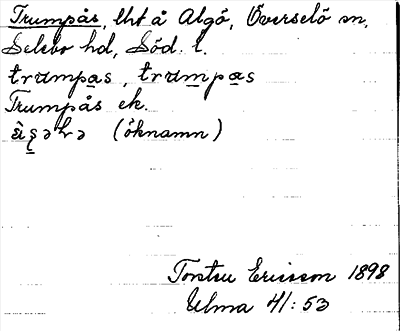 Trumpås, lht å Algö, Överselö sn,
Selebo hd, Söd. l.
trumpas, trumpas
Trumpås ek.
(öknamn)
Torsten Ericsson 1898
Ulma 41:53